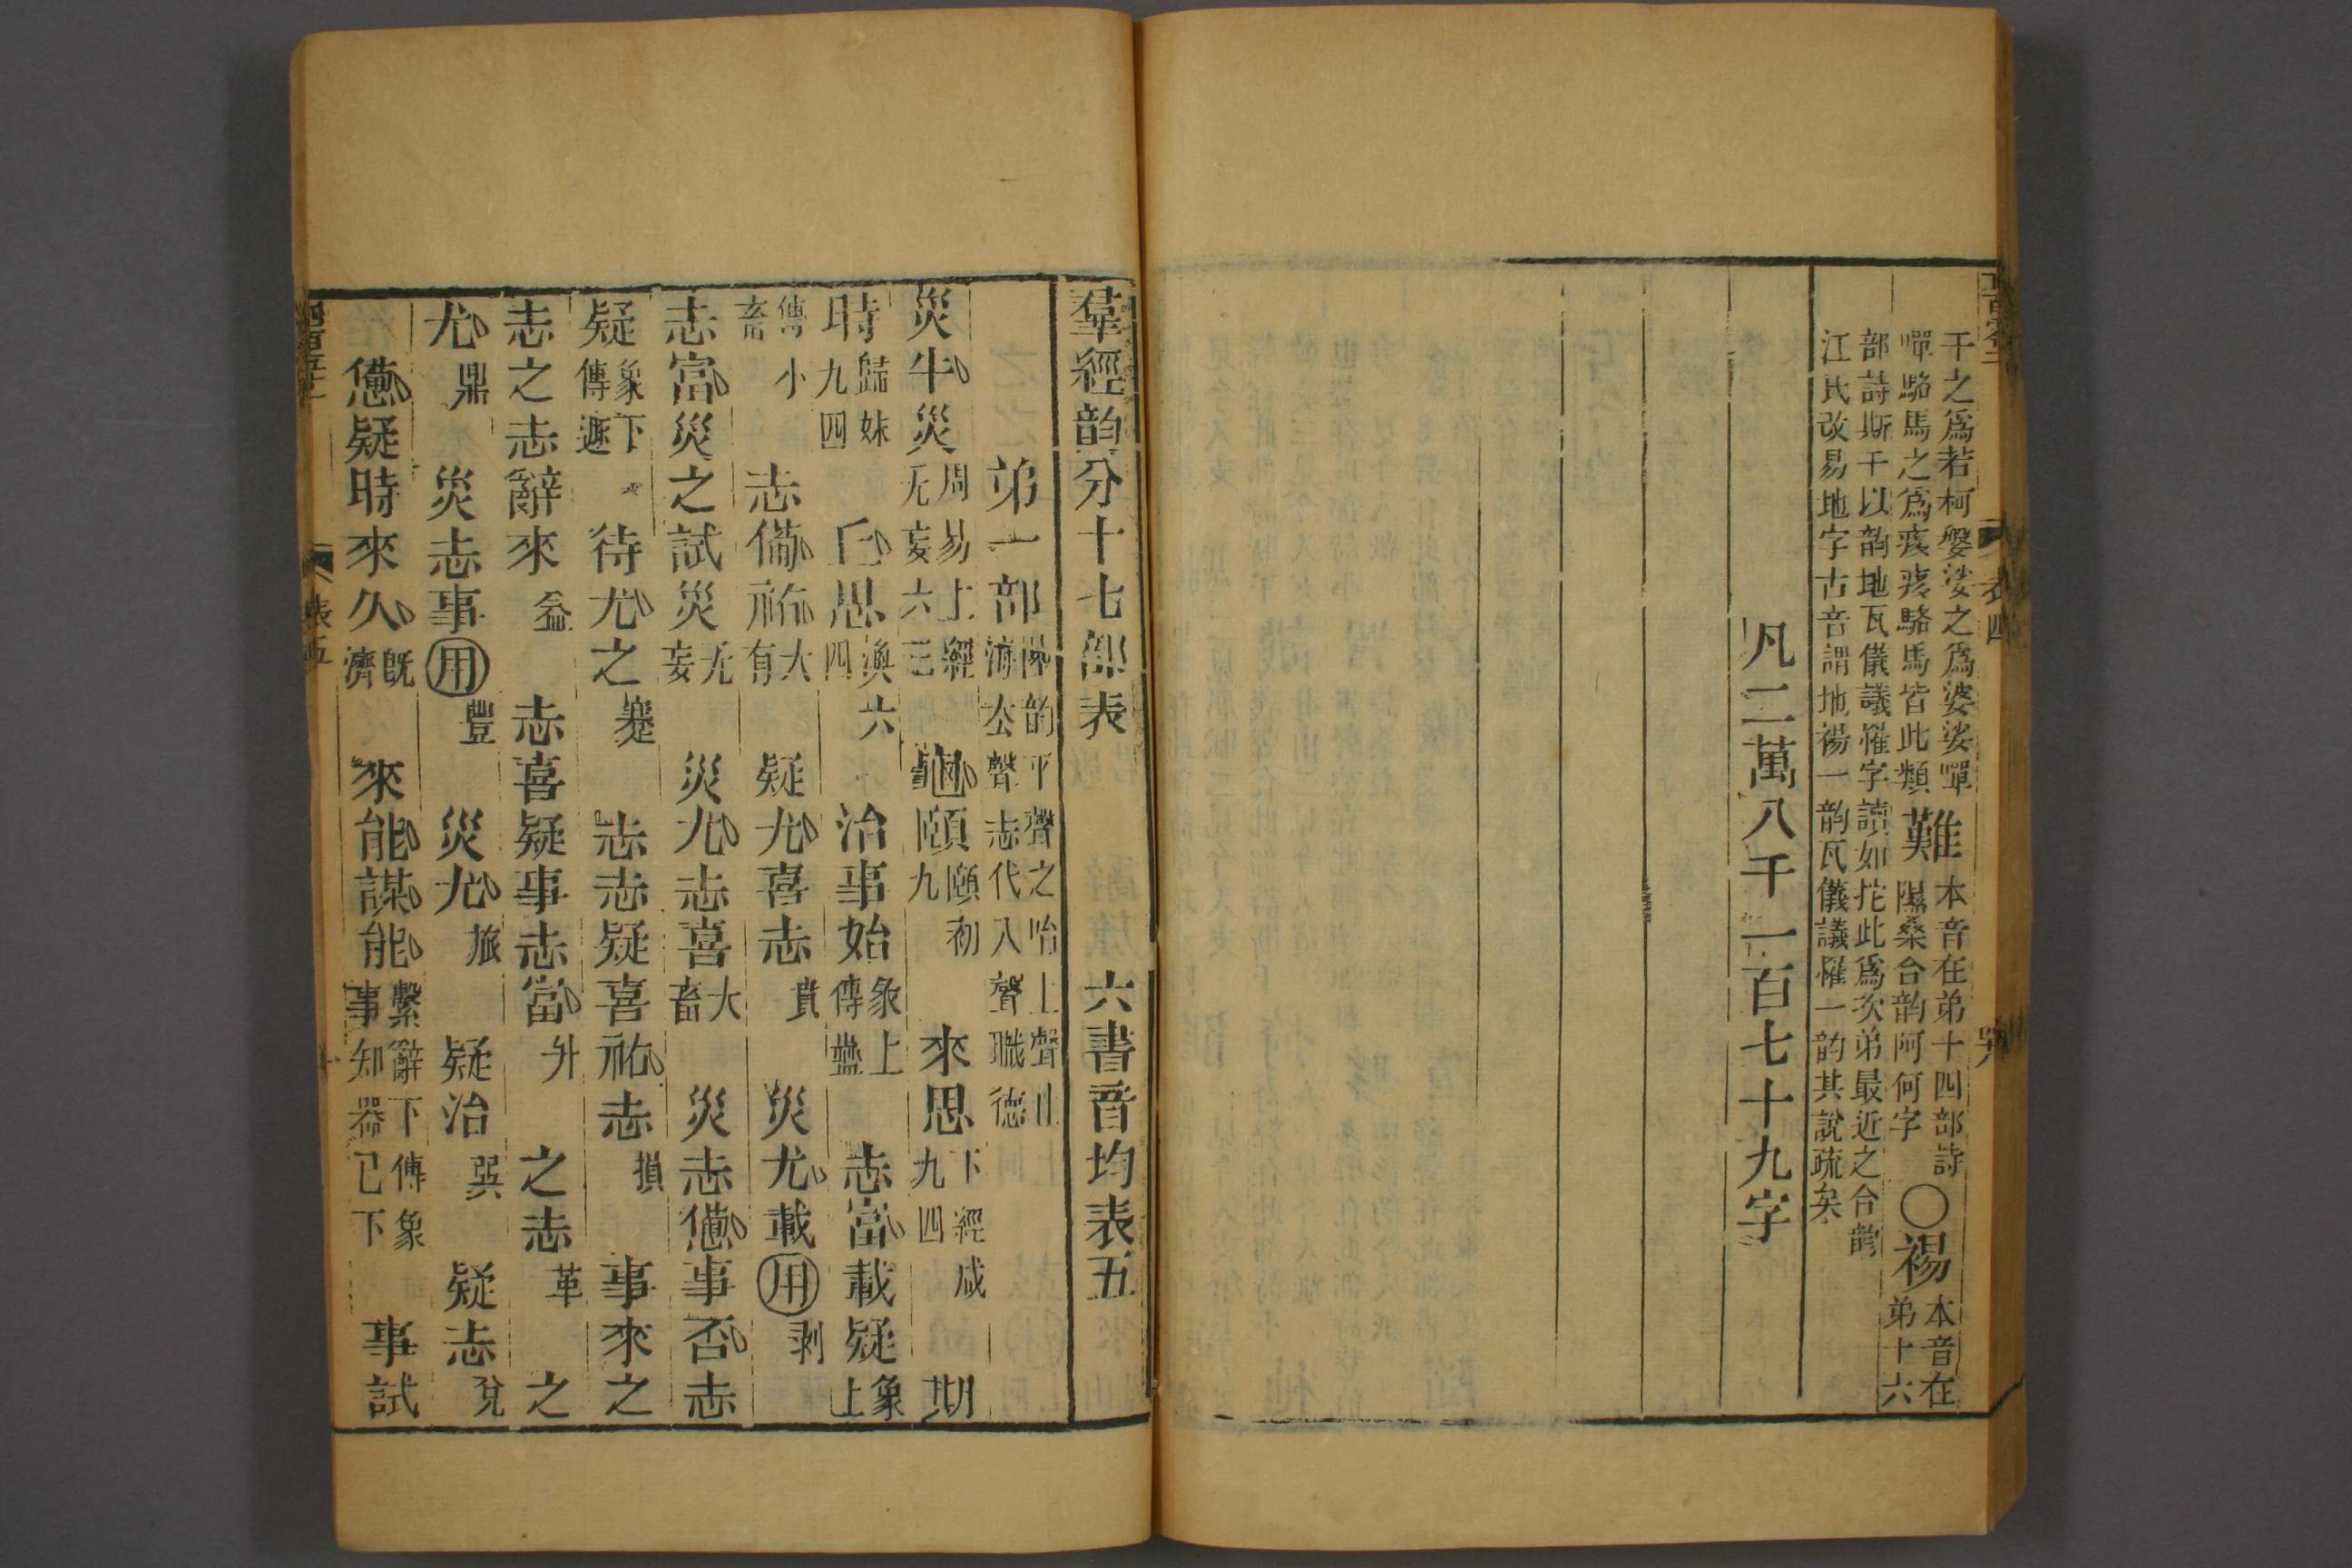 干之爲若柯磐娑之爲婆娑嘽
嘽駱馬之爲痑痑駱馬皆此類
難
本音在弟十四部詩
隰桑合韵阿何字
〇裼
本音在
弟十六
部詩斯干以韵地瓦儀議罹字讀如拕此爲次弟最近之合韵
江氏改易地字古音謂地裼一韵瓦儀議罹一韵其說疏矣
凡二萬八千一百七十九字
表四
羣經韵分十七部表 六書音均表五
弟一部
陸韵平聲之咍上聲止
海去聲志代入聲職德
災牛災 周易上經无妄六三 龜頤 頤初九 來思 下經咸九四 期
時 歸妹九四 𠀉思 渙六四 治事始 象上傳蠱 志富載疑 象上
傳小畜 志僃祐 大有 疑尤喜志 賁 災尤載用 剥
志富災之試災 无妄 災尤志喜 大畜 災志憊事否志
疑 象下傳遯 待尤之 蹇 志志疑喜祐志 損 事來之
志之志辭來 益 志喜疑事志富 升 之志 革 之
尤 鼎 災志事用 豐 災尤 旅 疑治 巽 疑志 兌
憊疑時來久 旣濟 來能謀能 繫辭下傳象事知器已下 事試
表五